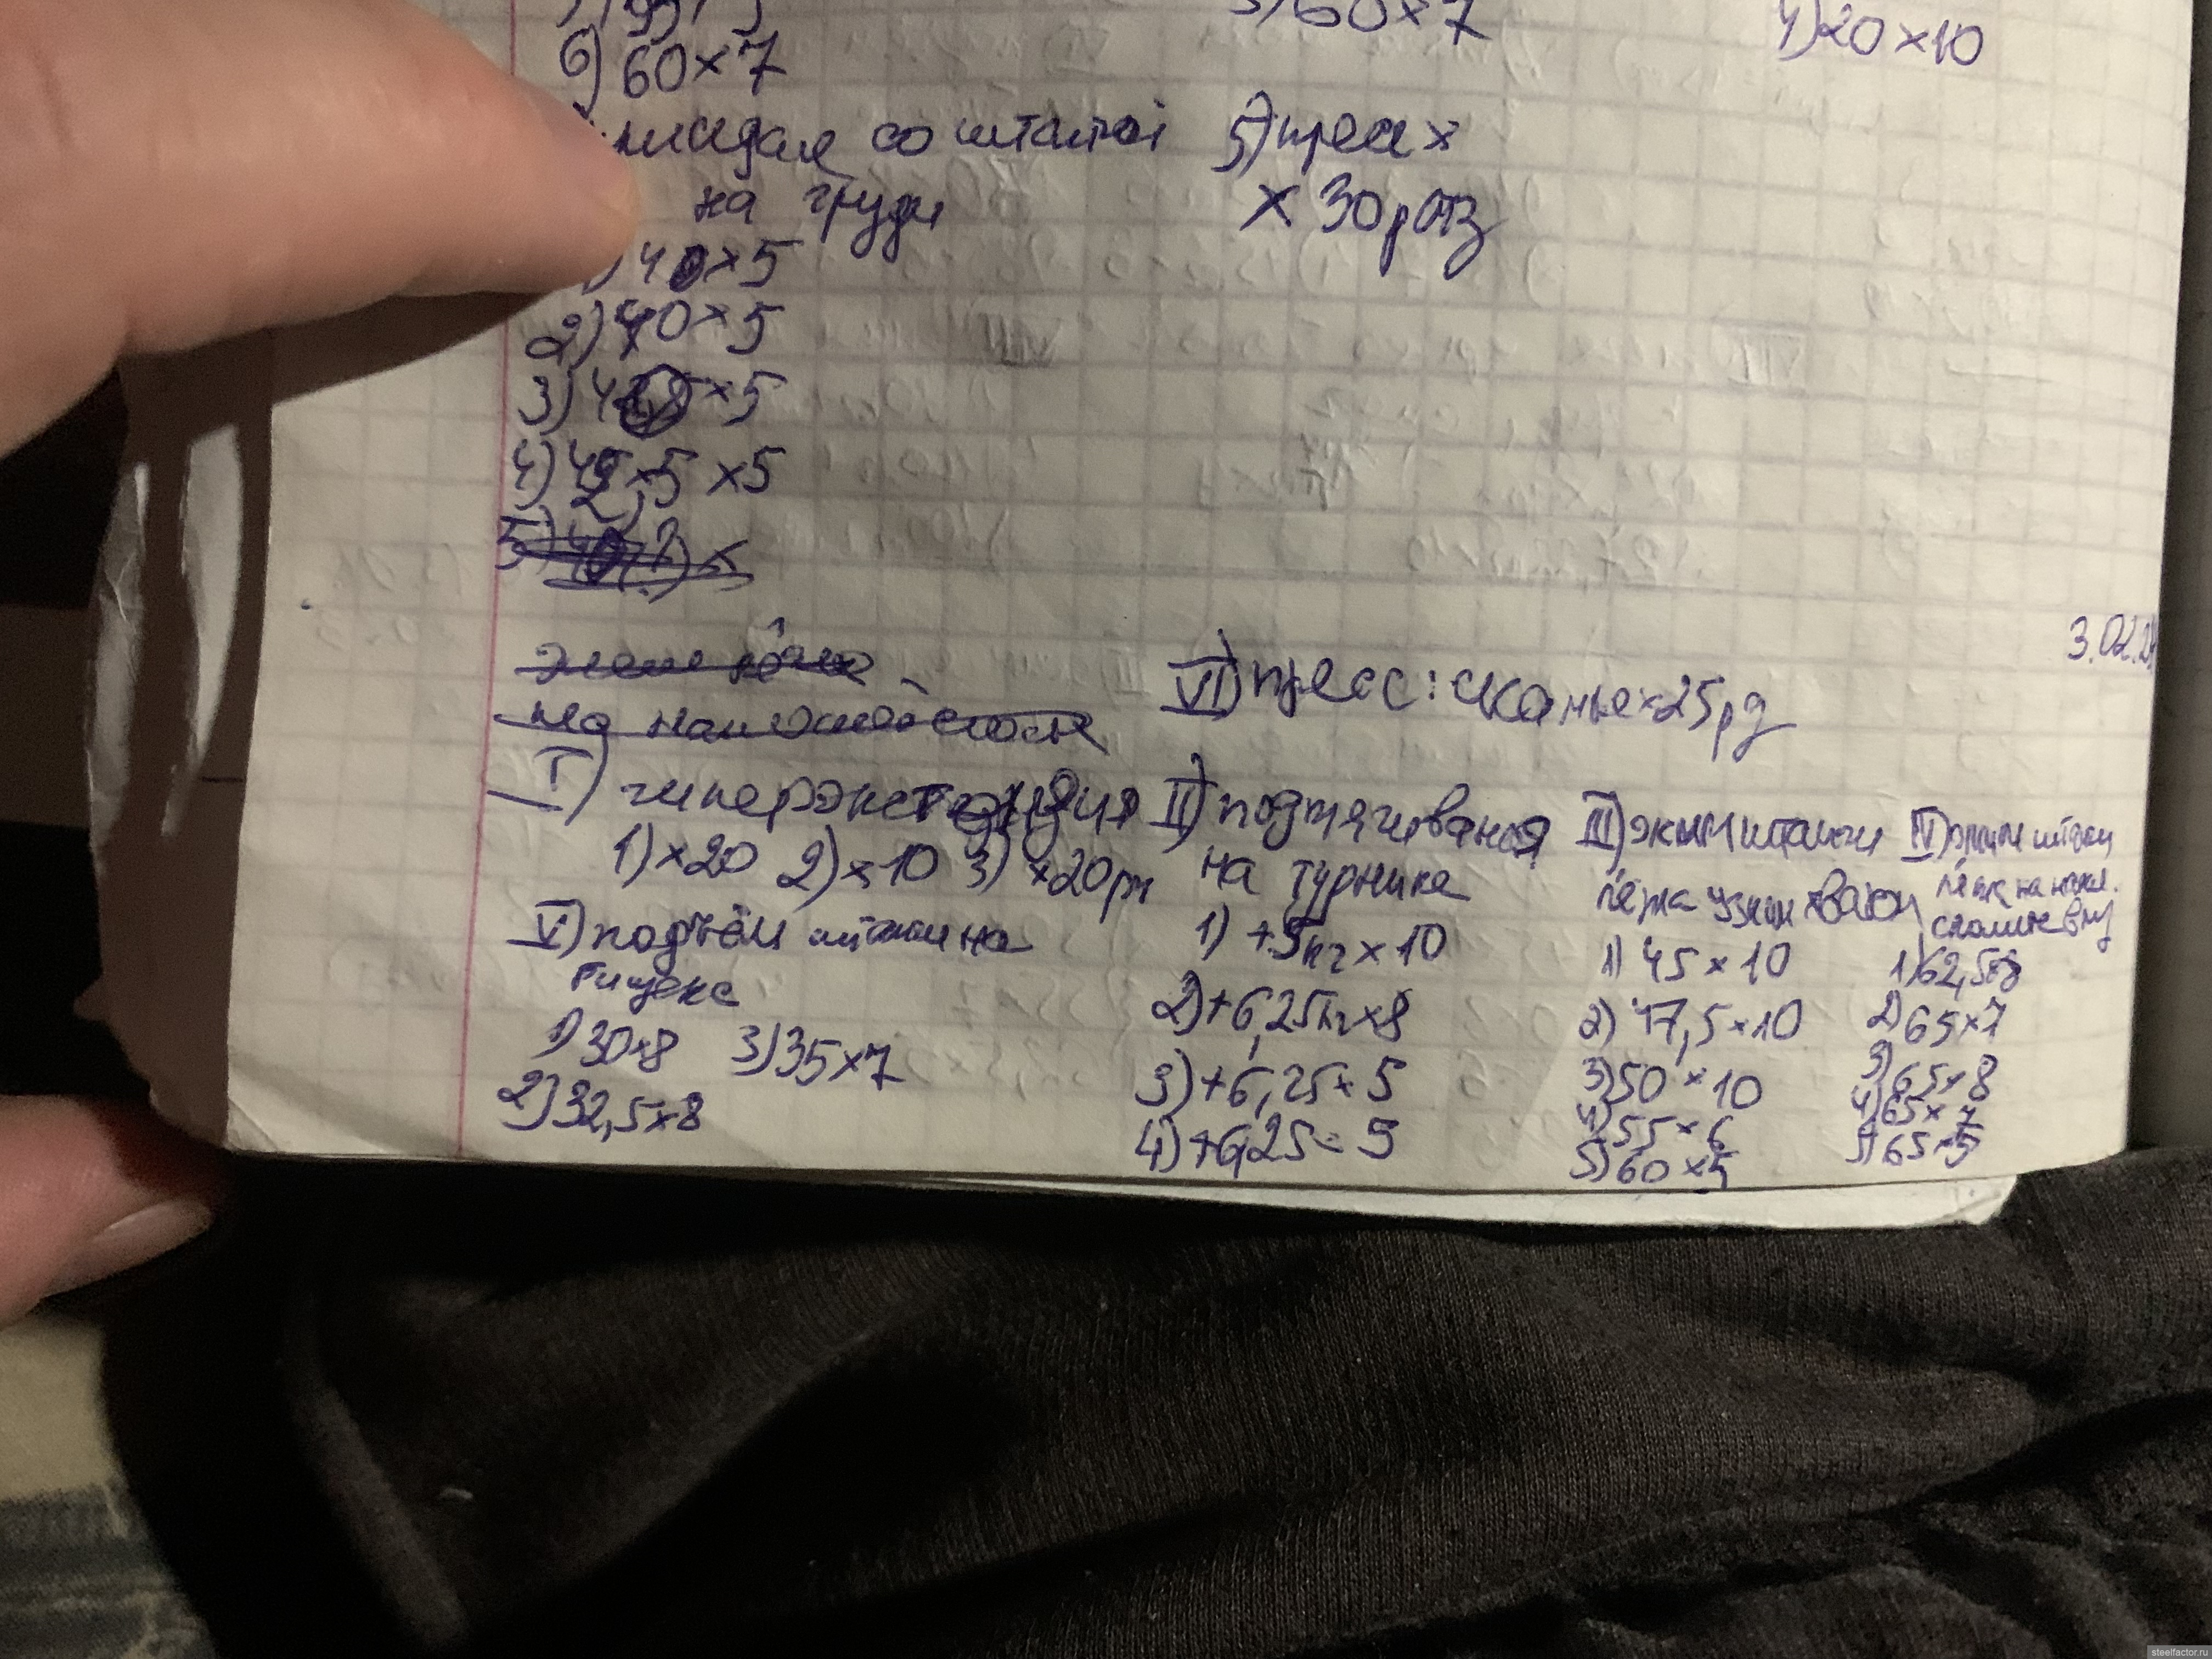 6) 60×7
3) 60×7
4) 20×10
со штангой
на груди
40×5
2) 40×5
3) 4 ×5
4) 42,5 ×5
5)
5) пресс ×
× 30 раз
3.02.2
VI) пресс: скамья×25 р
I) гиперэкстензия
1) ×20 2) ×10 3) ×20 
II) подтягивания
на турнике
1) +5кг×10
2) +6,25кг×8
3) +6,25×5
4) +6,25×5
III) жим штанги
лёжа узким хватом
1) 45×10
2) 47,5×10
3) 50×10
4) 55×6
5) 60×5
IV) жим штанги
лёжа на накл.
скамье вниз
1) 62,5×8
2) 65×7
3) 65×8
4) 65×7
5) 65×5
V) подъём штанги на
бицепс
1) 30×8 3) 35×7
2) 32,5×8
steelfactor.ru